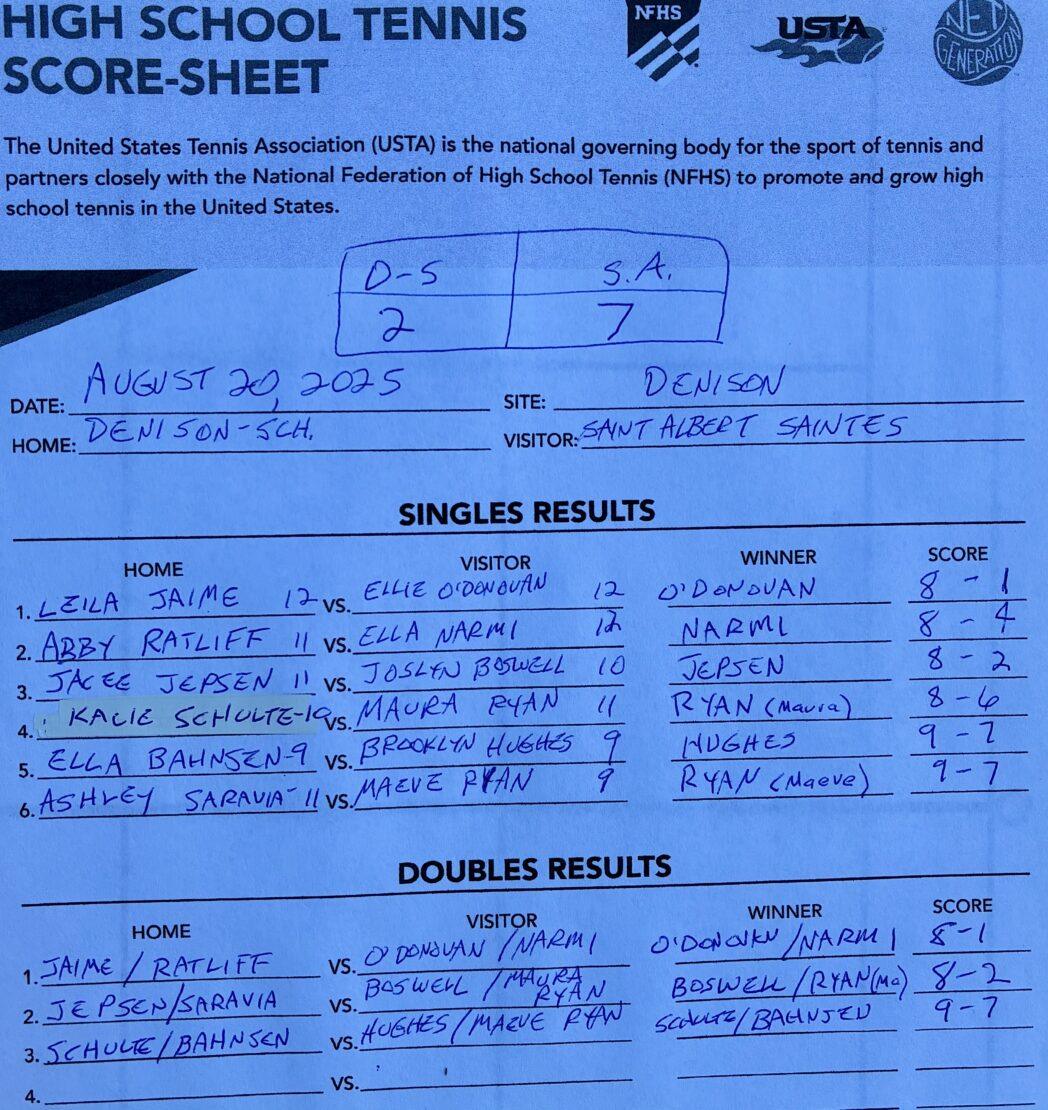 HIGH SCHOOL TENNIS
SCORE-SHEET
NFHS
USTA
NET
GENERATION
The United States Tennis Association (USTA) is the national governing body for the sport of tennis and
partners closely with the National Federation of High School Tennis (NFHS) to promote and grow high
school tennis in the United States.
D-S S.A.
2 7
DATE: AUGUST 20, 2025 SITE: DENISON
HOME: DENISON-SCH. VISITOR: SAINT ALBERT SAINTES
SINGLES RESULTS
HOME VISITOR WINNER SCORE
1. LEILA JAIME 12 VS. ELLIE O'DONOVAN 12 O'DONOVAN 8-1
2. ABBY RATLIFF 11 VS. ELLA NARMI 12 NARMI 8-4
3. JACEE JEPSEN 11 VS. JOSLYN BOSWELL 10 JEPSEN 8-2
4. KALIE SCHULTE-10 VS. MAURA RYAN 11 RYAN (Maura) 8-6
5. ELLA BAHNSEN-9 VS. BROOKLYN HUGHES 9 HUGHES 9-7
6. ASHLEY SARAVIA-11 VS. MAEVE RYAN 9 RYAN (Maeve) 9-7
DOUBLES RESULTS
HOME VISITOR WINNER SCORE
1. JAIME/RATLIFF VS. O'DONOVAN/NARMI O'DONOVAN/NARMI 8-1
2. JEPSEN/SARAVIA VS. BOSWELL/MAURA RYAN BOSWELL/RYAN(Ma) 8-2
3. SCHULTE/BAHNSEN VS. HUGHES/MAEVE RYAN SCHULTE/BAHNSEN 9-7
4. VS.